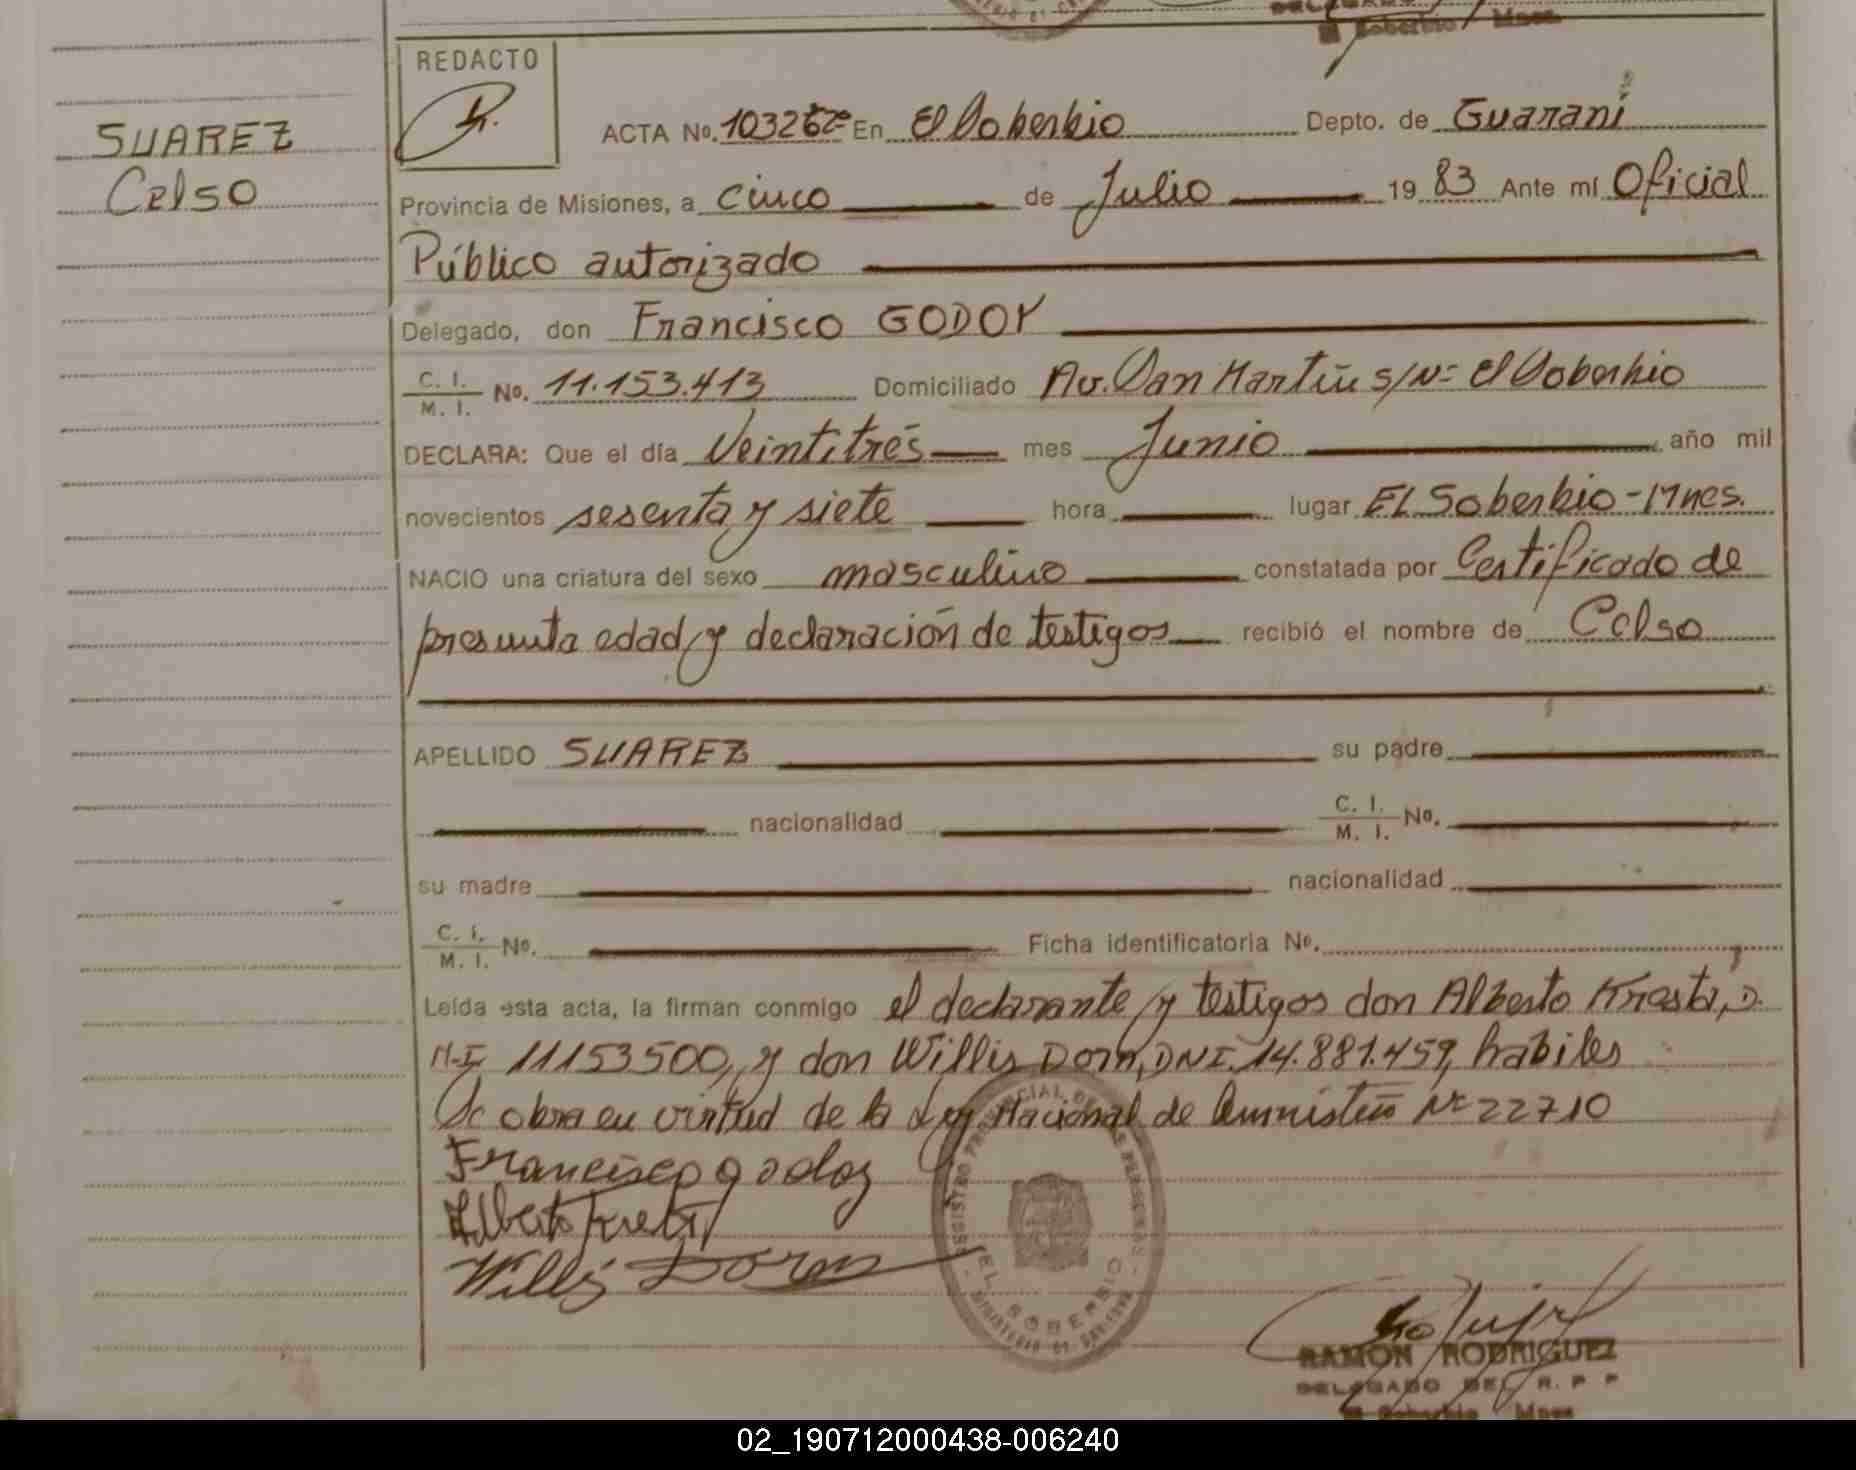 REDACTO
SUAREZ
Celso
ACTA No. En El Soberbio Depto. de Guaraní
Provincia de Misiones, a cinco de Julio 19 83 Ante mí Oficial
Público autorizado
Delegado, don Francisco GODOY
C. I.
M. I. No. 11.153.413 Domiciliado Av. San Martín s/Nº El Soberbio
DECLARA: Que el día Veintitrés mes Junio año mil
novecientos sesenta y siete hora lugar EL Soberbio - Mnes.
NACIO una criatura del sexo masculino constatada por Certificado de
presunta edad y declaración de testigos recibió el nombre de Celso
APELLIDO SUAREZ su padre
nacionalidad C. I.
M. I. No.
su madre nacionalidad
C. I.
M. I. No. Ficha identificatoria No.
Leída esta acta, la firman conmigo el declarante y testigos don Alberto Kresta, D.
N.I 11153500, y don Willis Dorn, DNI. 14.881.459, habiles
Se obra en virtud de la Ley Nacional de Amnistía Nº 22710
Francisco godoy
Alberto
Willis Dorn
REGISTRO PROVINCIAL DE LAS PERSONAS
EL SOBERBIO
RAMON RODRIGUEZ
DELEGADO DEL R. P. P
El Soberbio Mnes
02_190712000438-006240